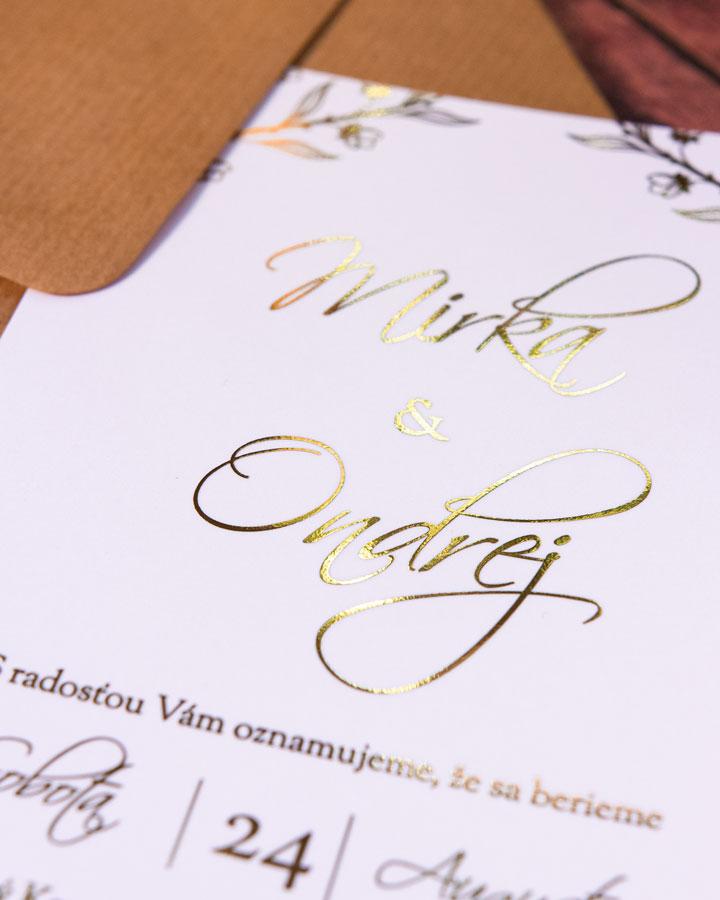 Mirka
&
Ondrej
S radosťou Vám oznamujeme, že sa berieme
Sobota | 24 | August